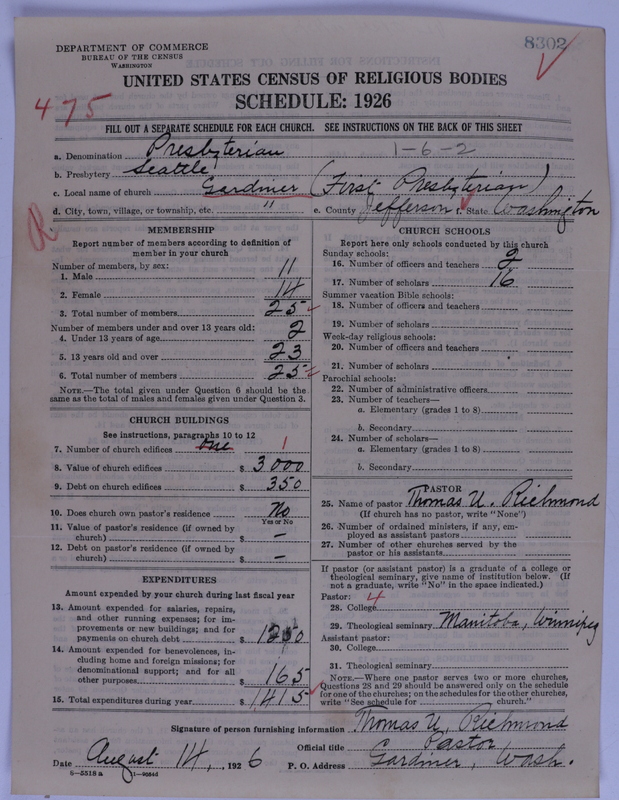 8302
DEPARTMENT OF COMMERCE
BUREAU OF THE CENSUS
WASHINGTON
UNITED STATES CENSUS OF RELIGIOUS BODIES
SCHEDULE: 1926
475
FILL OUT A SEPARATE SCHEDULE FOR EACH CHURCH. SEE INSTRUCTIONS ON THE BACK OF THIS SHEET
a. Denomination Presbyterian 1-6-2
b. Presbytery Seattle
c. Local name of church Gardiner (First Presbyterian)
d. City, town, village, or township, etc. " e. County Jefferson f. State Washington
MEMBERSHIP
Report number of members according to definition of
member in your church
Number of members, by sex:
1. Male 11
2. Female 14
3. Total number of members 25
Number of members under and over 13 years old:
4. Under 13 years of age 2
5. 13 years old and over 23
6. Total number of members 25
NOTE.—The total given under Question 6 should be the
same as the total of males and females given under Question 3.
CHURCH BUILDINGS
See instructions, paragraphs 10 to 12
7. Number of church edifices one 1
8. Value of church edifices $ 3000
9. Debt on church edifices $ 350
10. Does church own pastor's residence No
Yes or No
11. Value of pastor's residence (if owned by
church) $ —
12. Debt on pastor's residence (if owned by
church) $ —
EXPENDITURES
Amount expended by your church during last fiscal year
13. Amount expended for salaries, repairs,
and other running expenses; for im-
provements or new buildings; and for
payments on church debt $ 1250
14. Amount expended for benevolences, in-
cluding home and foreign missions; for
denominational support; and for all
other purposes $ 165
15. Total expenditures during year $ 1415
CHURCH SCHOOLS
Report here only schools conducted by this church
Sunday schools:
16. Number of officers and teachers 2
17. Number of scholars 16
Summer vacation Bible schools:
18. Number of officers and teachers
19. Number of scholars
Week-day religious schools:
20. Number of officers and teachers
21. Number of scholars
Parochial schools:
22. Number of administrative officers
23. Number of teachers—
a. Elementary (grades 1 to 8)
b. Secondary
24. Number of scholars—
a. Elementary (grades 1 to 8)
b. Secondary
PASTOR
25. Name of pastor Thomas U. Richmond
(If church has no pastor, write "None")
26. Number of ordained ministers, if any, em-
ployed as assistant pastors
27. Number of other churches served by the
pastor or his assistants
If pastor (or assistant pastor) is a graduate of a college or
theological seminary, give name of institution below. (If
not a graduate, write "No" in the space indicated.)
Pastor: 4
28. College
29. Theological seminary Manitoba, Winnipeg
Assistant pastor:
30. College
31. Theological seminary
NOTE.—Where one pastor serves two or more churches,
Questions 28 and 29 should be answered only on the schedule
for one of the churches; on the schedules for the other churches,
write "See schedule for church."
Signature of person furnishing information Thomas U. Richmond
Official title Pastor
Date August 14, 1926 P. O. Address Gardiner, Wash.